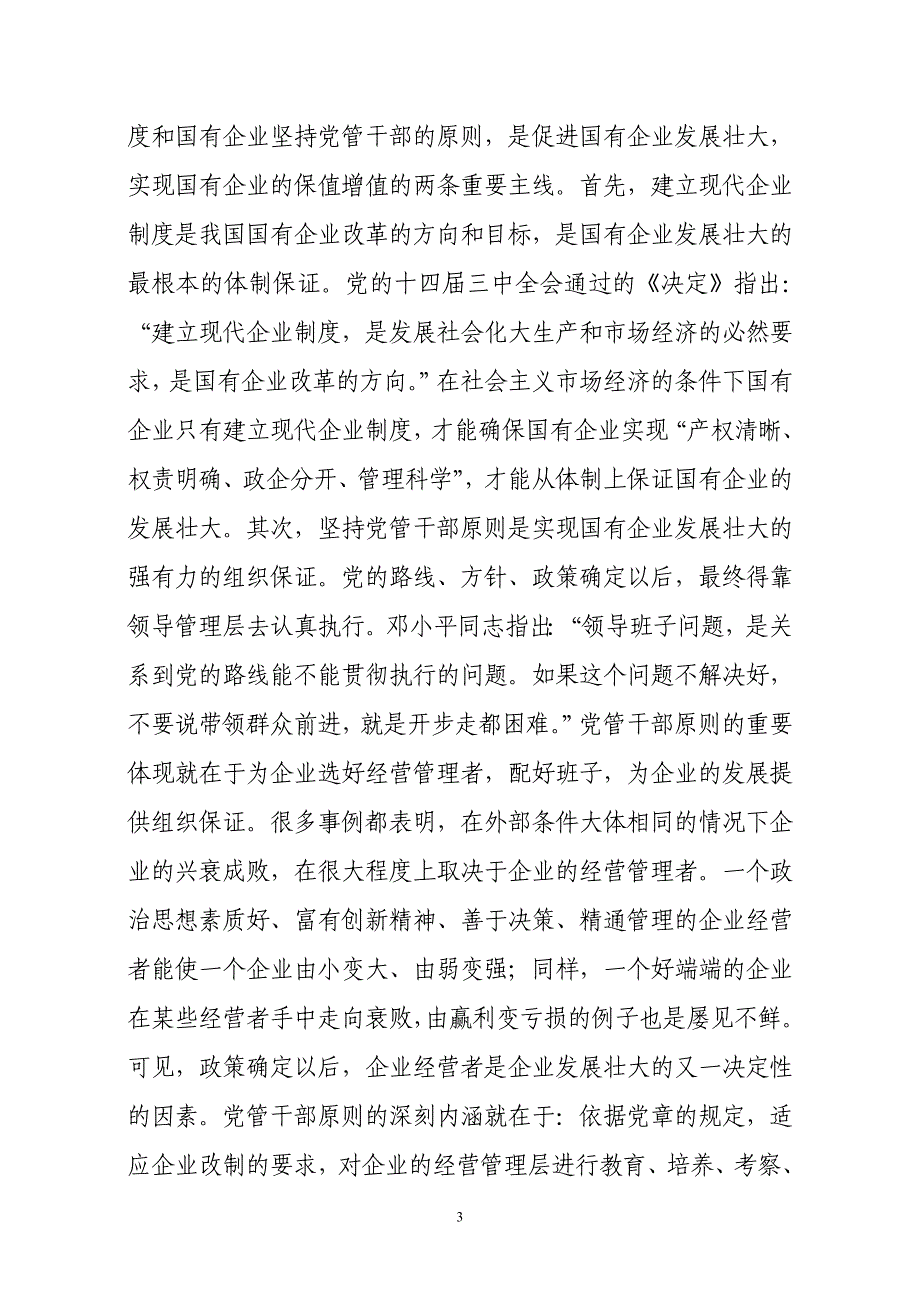 度和国有企业坚持党管干部的原则，是促进国有企业发展壮大，
实现国有企业的保值增值的两条重要主线。首先，建立现代企业
制度是我国国有企业改革的方向和目标，是国有企业发展壮大的
最根本的体制保证。党的十四届三中全会通过的《决定》指出：
“建立现代企业制度，是发展社会化大生产和市场经济的必然要
求，是国有企业改革的方向。”在社会主义市场经济的条件下国有
企业只有建立现代企业制度，才能确保国有企业实现“产权清晰、
权责明确、政企分开、管理科学”，才能从体制上保证国有企业的
发展壮大。其次，坚持党管干部原则是实现国有企业发展壮大的
强有力的组织保证。党的路线、方针、政策确定以后，最终得靠
领导管理层去认真执行。邓小平同志指出：“领导班子问题，是关
系到党的路线能不能贯彻执行的问题。如果这个问题不解决好，
不要说带领群众前进，就是开步走都困难。”党管干部原则的重要
体现就在于为企业选好经营管理者，配好班子，为企业的发展提
供组织保证。很多事例都表明，在外部条件大体相同的情况下企
业的兴衰成败，在很大程度上取决于企业的经营管理者。一个政
治思想素质好、富有创新精神、善于决策、精通管理的企业经营
者能使一个企业由小变大、由弱变强；同样，一个好端端的企业
在某些经营者手中走向衰败，由赢利变亏损的例子也是屡见不鲜。
可见，政策确定以后，企业经营者是企业发展壮大的又一决定性
的因素。党管干部原则的深刻内涵就在于：依据党章的规定，适
应企业改制的要求，对企业的经营管理层进行教育、培养、考察、
3